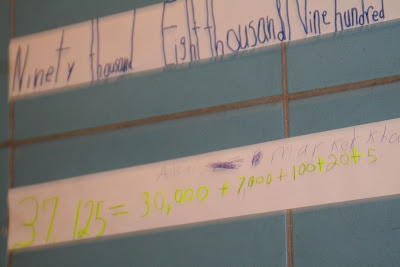 Ninety thousand Eight thousand Nine hundred
marker
37 125 = 30,000 + 7,000 + 100 + 20 + 5